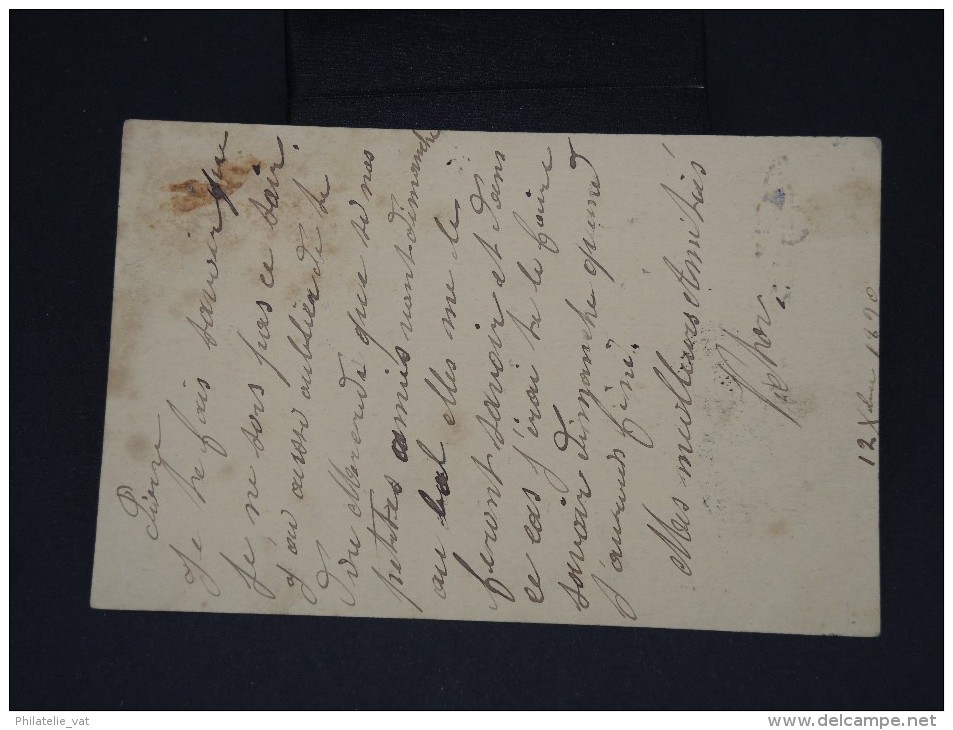 Pierre
Je te fais savoir que
je ne sors pas ce soir.
J'ai aussi oublier de te
dire Mercredi que si nos
petites amies vont dimanche
au bal elles me le
feront savoir et dans
ce cas j'irai te le faire
savoir dimanche quand
j'aurais finé.
Mes meilleures Amitiés
12 Xbre 1890
Philatelie_vat
www.delcampe.net